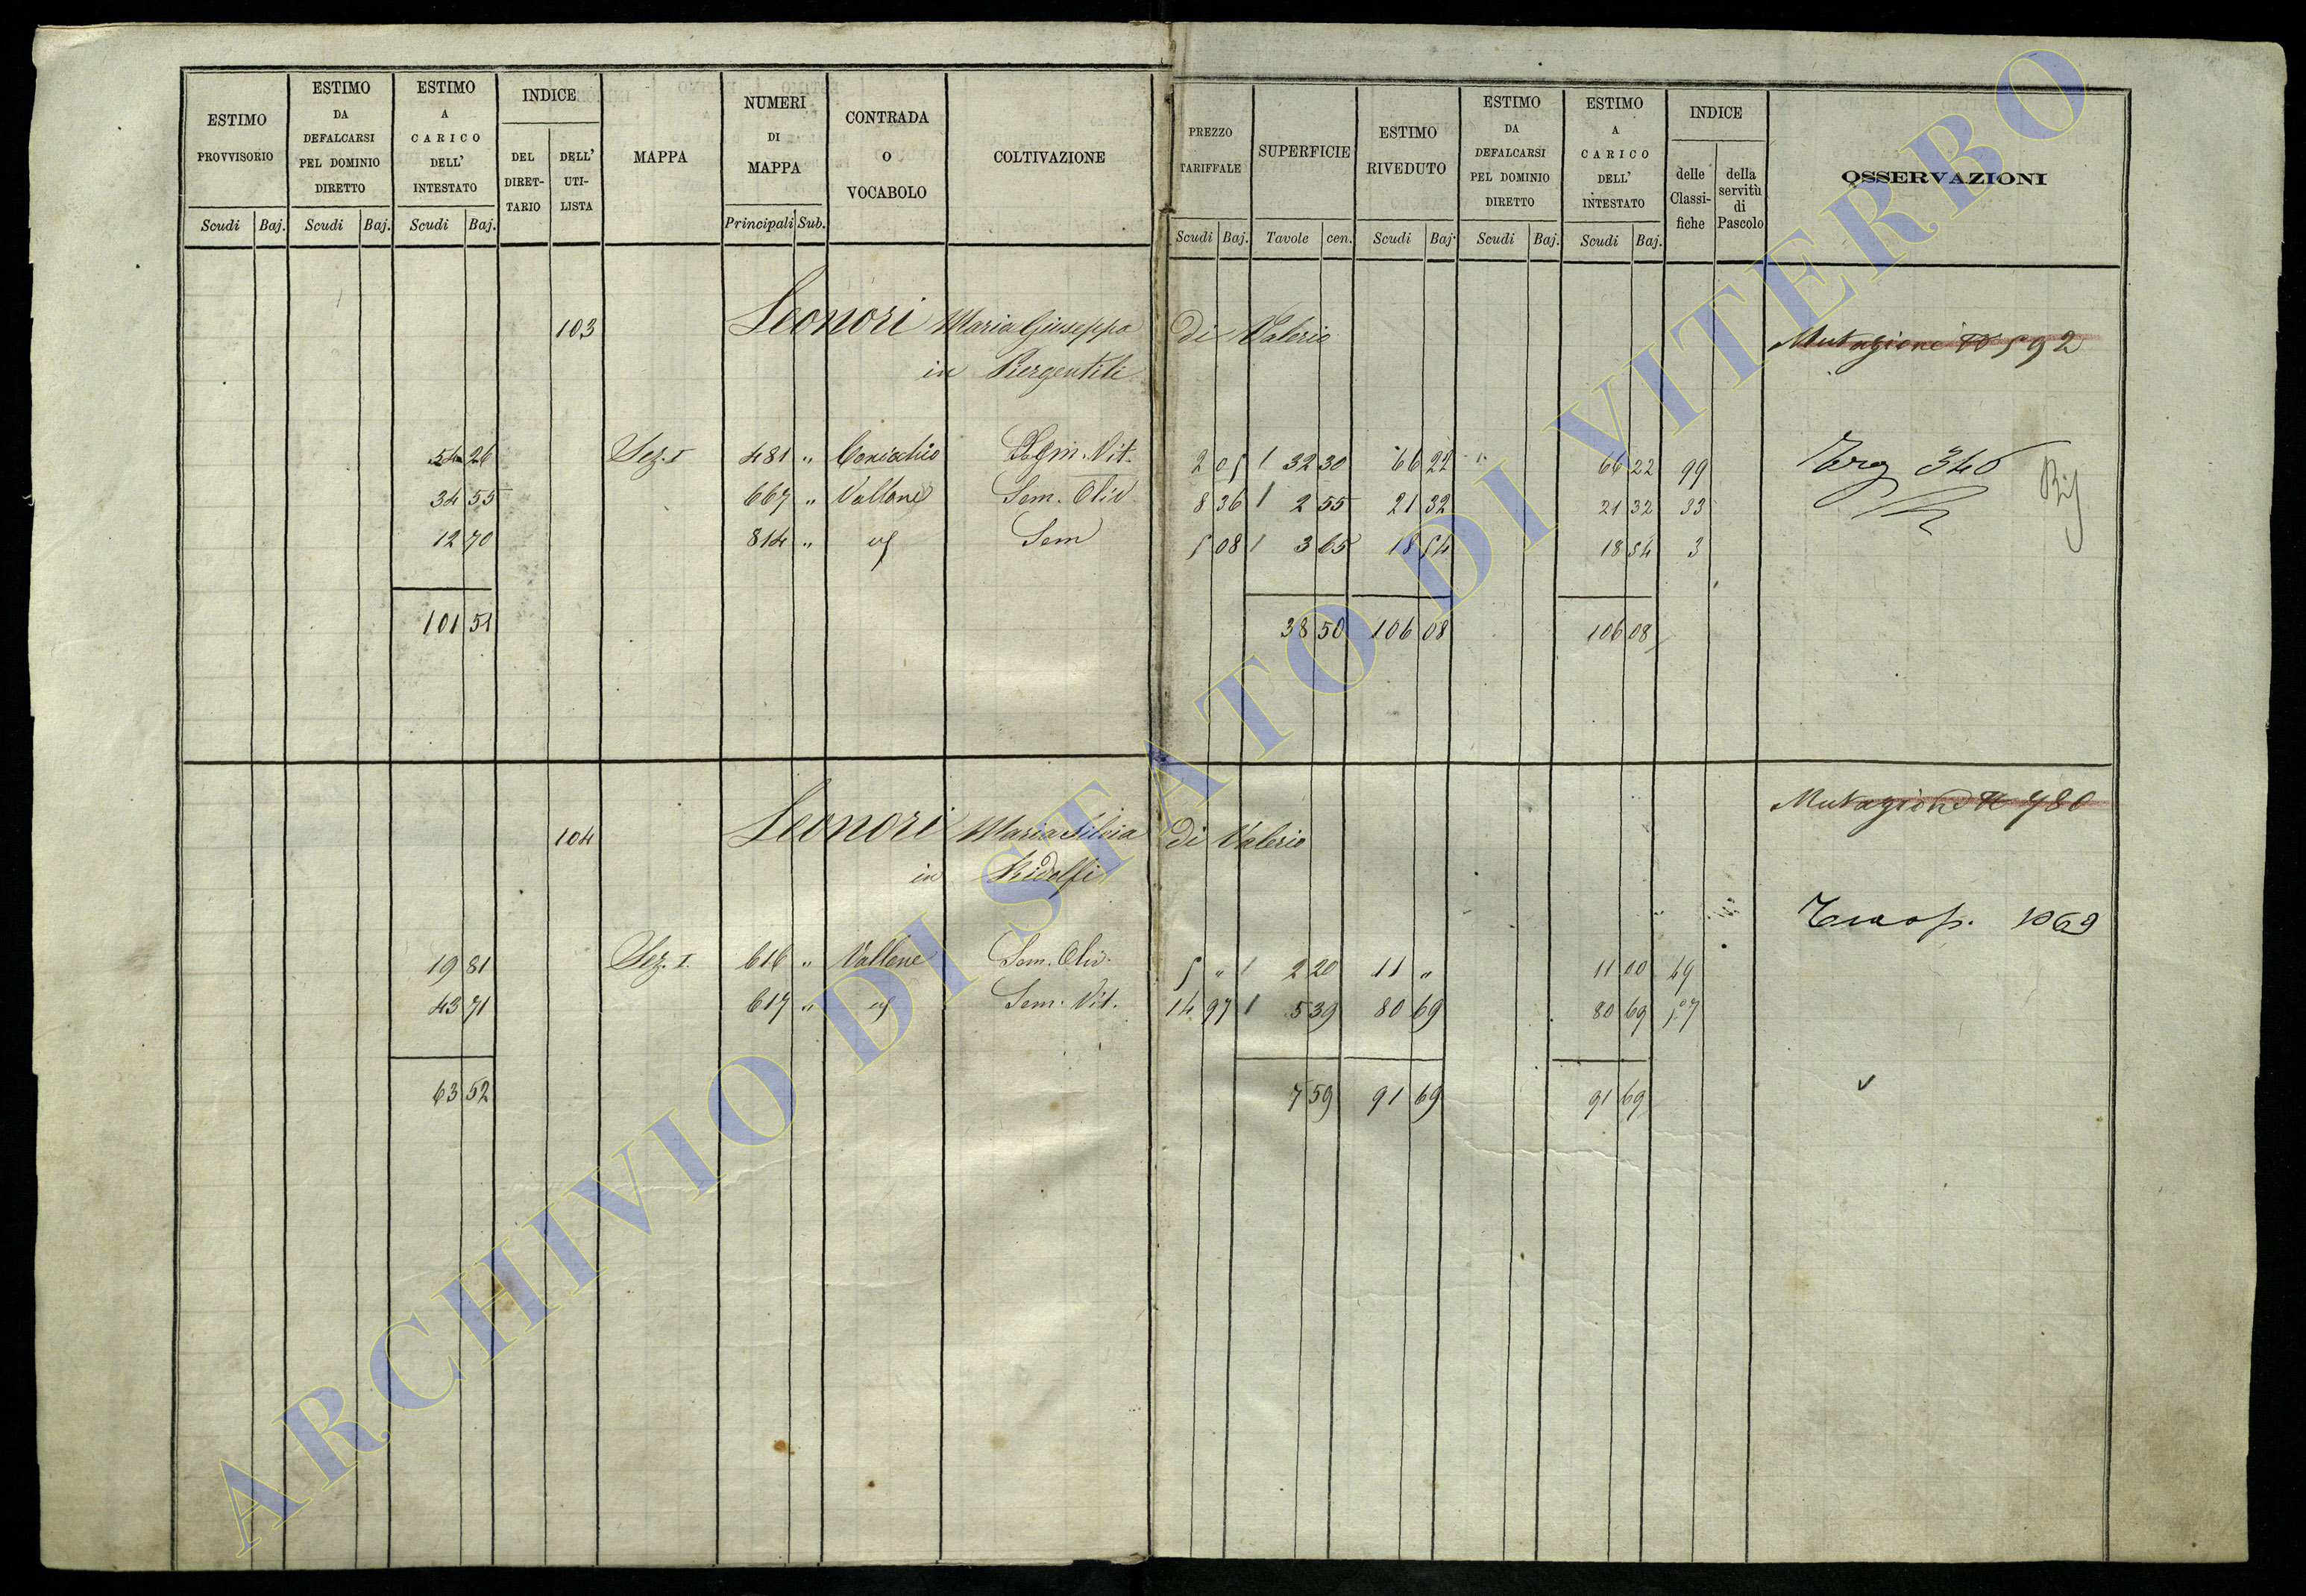 ESTIMO PROVVISORIO
ESTIMO DA DEFALCARSI PEL DOMINIO DIRETTO
ESTIMO A CARICO DELL' INTESTATO
INDICE
DEL DIRET-TARIO
DELL' UTI-LISTA
MAPPA
NUMERI DI MAPPA
CONTRADA O VOCABOLO
COLTIVAZIONE
PREZZO TARIFFALE
SUPERFICIE
ESTIMO RIVEDUTO
ESTIMO DA DEFALCARSI PEL DOMINIO DIRETTO
ESTIMO A CARICO DELL' INTESTATO
INDICE
delle Classi-fiche
della servitù di Pascolo
OSSERVAZIONI
Scudi Baj. Scudi Baj. Scudi Baj. Principali Sub. Scudi Baj. Tavole cen. Scudi Baj. Scudi Baj. Scudi Baj.
103 Leonori Maria Giuseppa di Valerio Mutazione N 592
in Piergentili
54 26 Sez. I 481 " Sem. Vit. 2 05 / 32 30 66 22 66 22 99
34 55 667 " Vallone Sem. Oliv 8 36 / 2 55 21 32 21 32 33
12 70 814 " Sem 5 08 / 3 65 18 54 18 54 3
101 51 38 50 106 08 106 08
104 Leonori Maria Silvia di Valerio Mutazione N 780
in Ridolfi
19 81 Sez. I. 616 " Vallone Sem. Oliv. 5 " / 2 20 11 " 11 00 49
43 71 617 " Sem. Vit. 14 97 / 5 39 80 69 80 69
63 52 7 59 91 69 91 69
ARCHIVIO DI STATO DI VITERBO